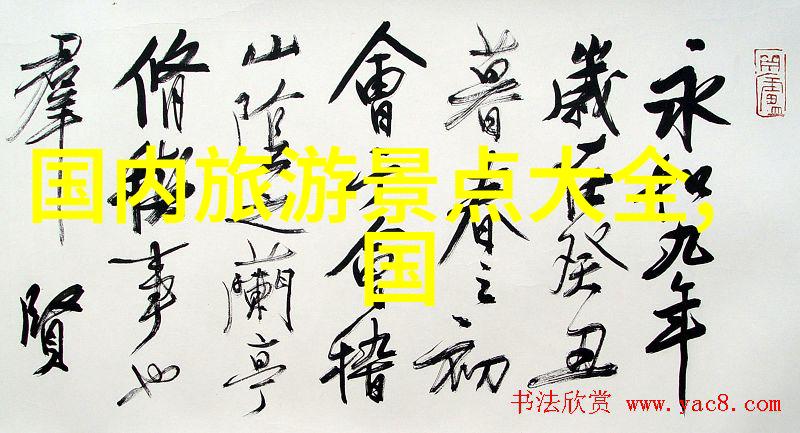 永和九年
歲在癸丑
暮春之初
會于會稽
山陰之蘭亭
脩禊事也
羣賢
国内旅游景点大全,
国
书法欣赏 www.yac8.com